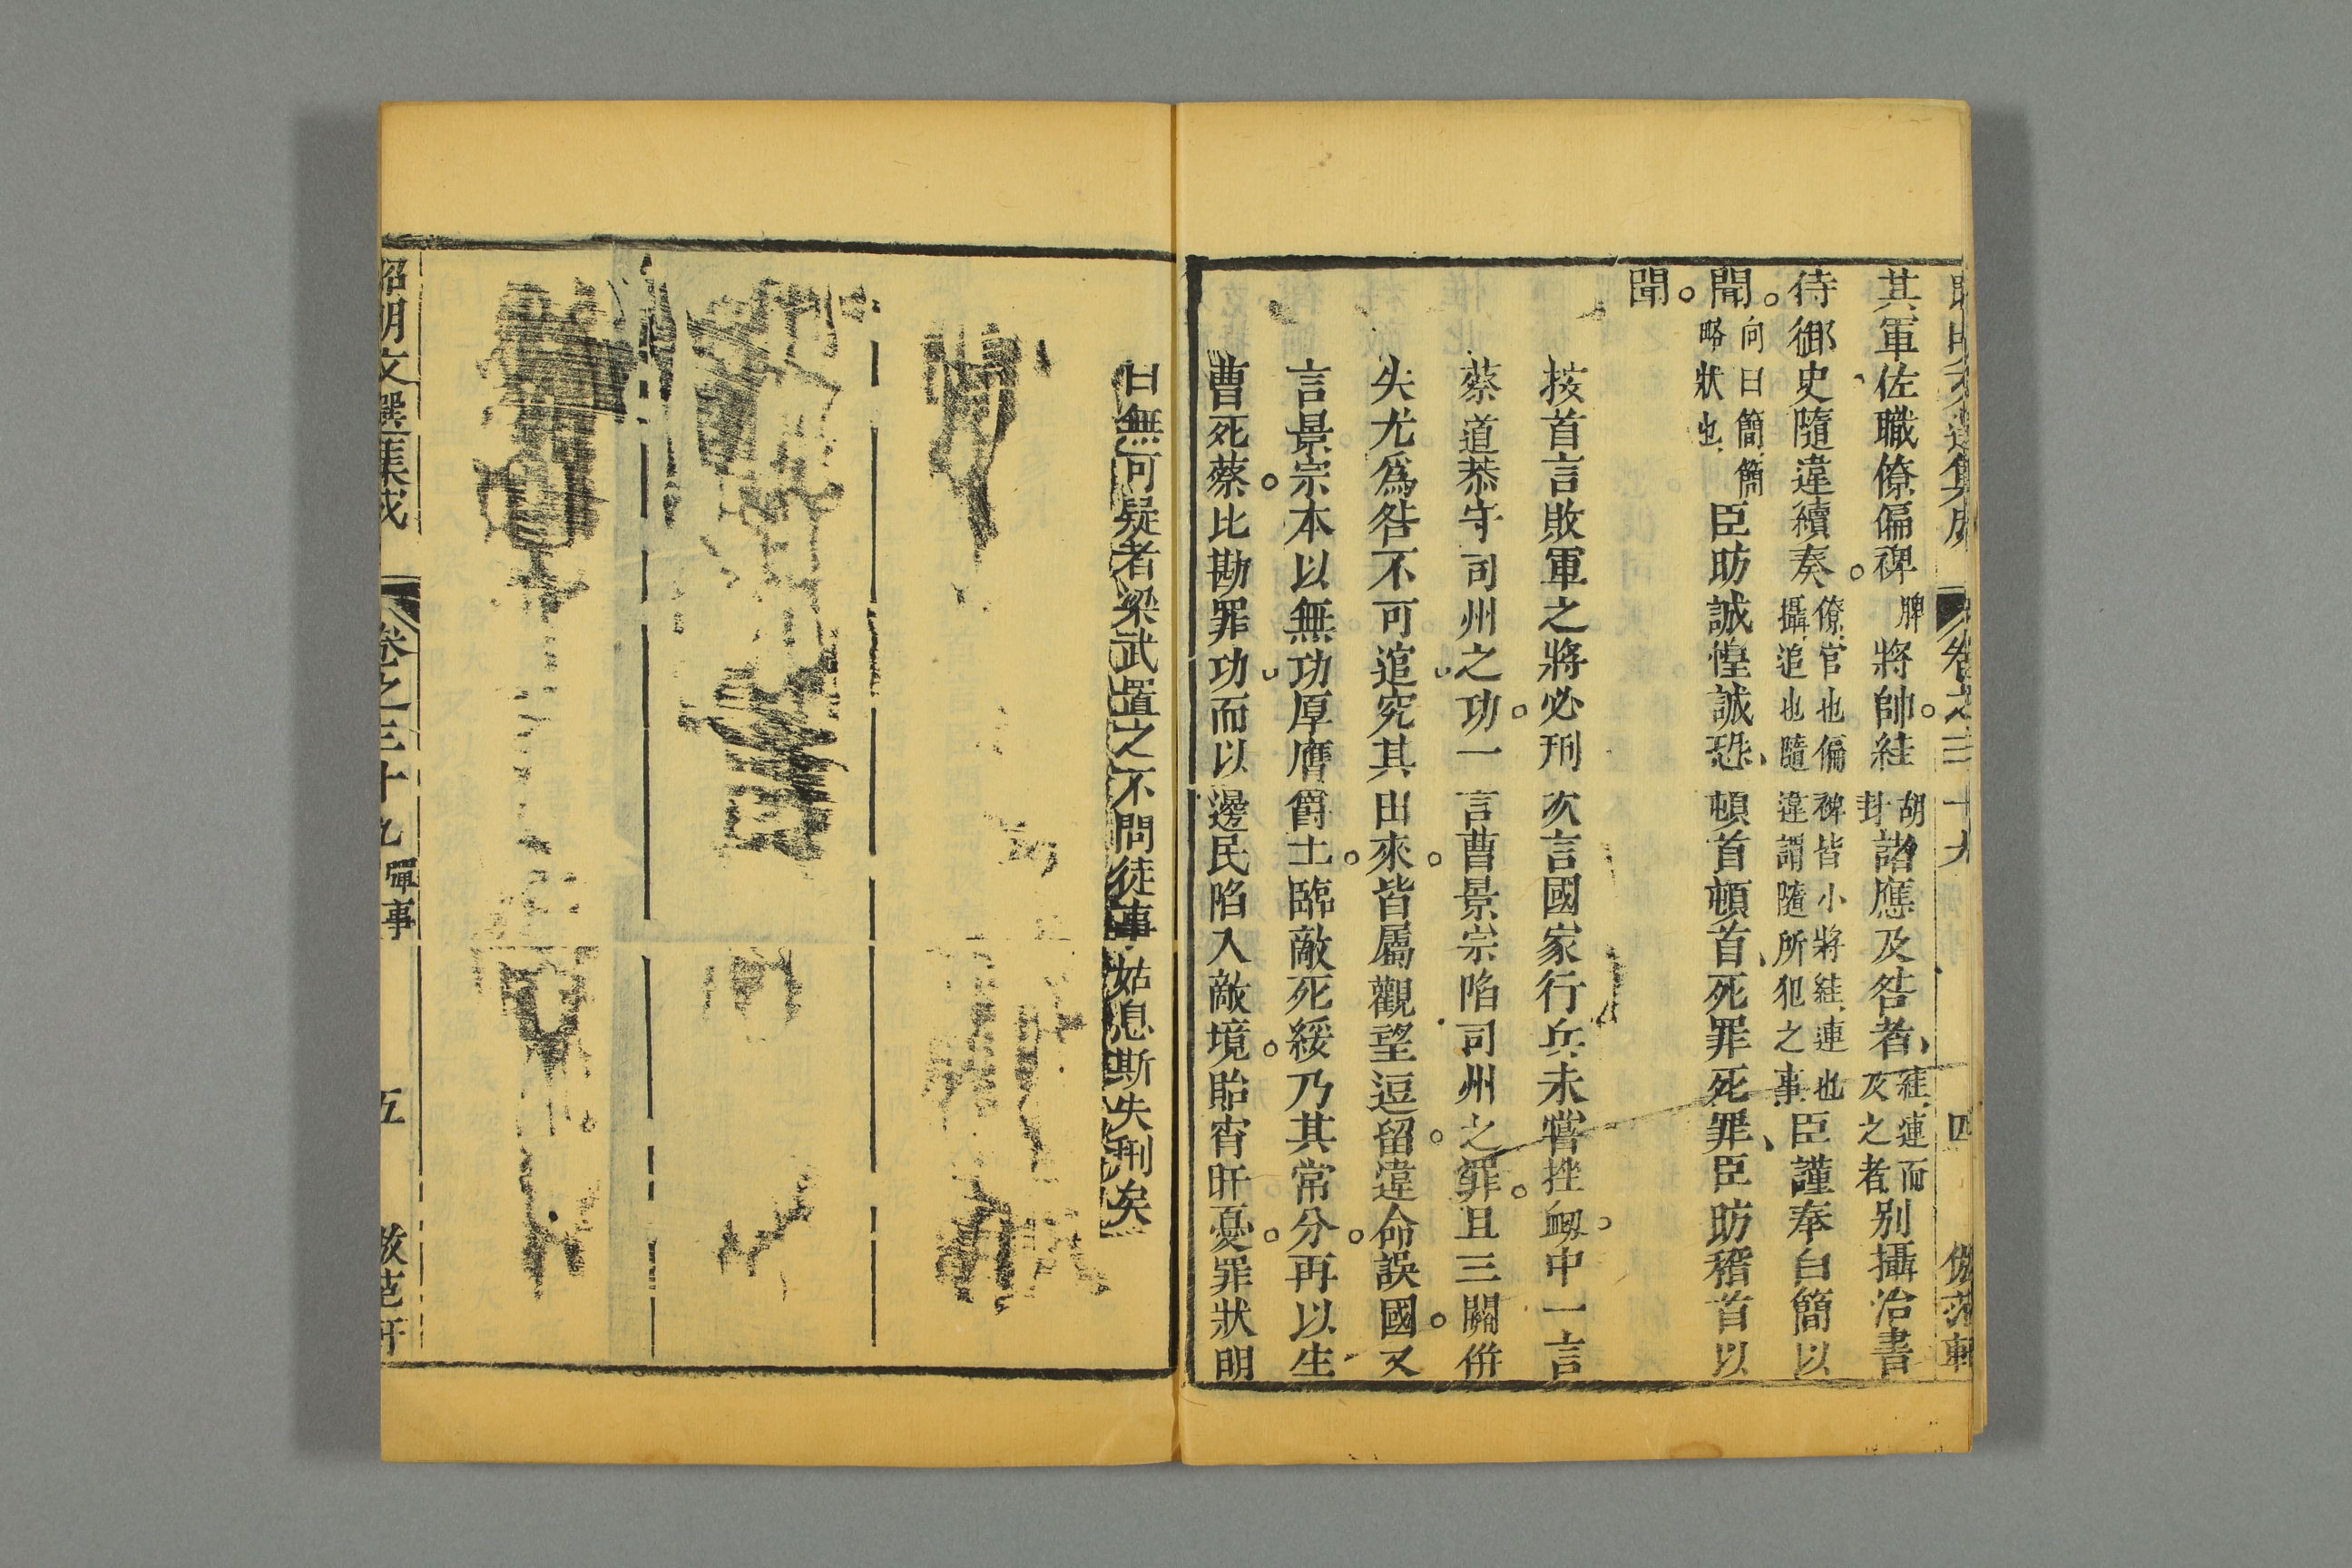 昭明文選集成 卷之三十九 四 倣范軒
其軍佐職僚偏裨脾將帥絓胡卦諸應及咎者絓連而及之者別攝治書
侍御史隨違續奏僚官也偏裨皆小將絓連也攝追也隨違謂隨所犯之事臣謹奉白簡以
聞向曰簡簡略狀也臣昉誠惶誠恐頓首頓首死罪死罪臣昉稽首以
聞
按首言敗軍之將必刑次言國家行兵未嘗挫衂中一言
蔡道恭守司州之功一言曹景宗陷司州之罪且三關倂
失尤爲咎不可逭究其由來皆屬觀望逗留違命誤國又
言景宗本以無功厚膺爵土臨敵死綏乃其常分再以生
曹死蔡比勘罪功而以邊民陷入敵境貽宵旰憂罪狀明
白無可疑者梁武置之不問徒事姑息斯失刑矣
昭明文選集成 卷之三十九 彈事 五 倣范軒